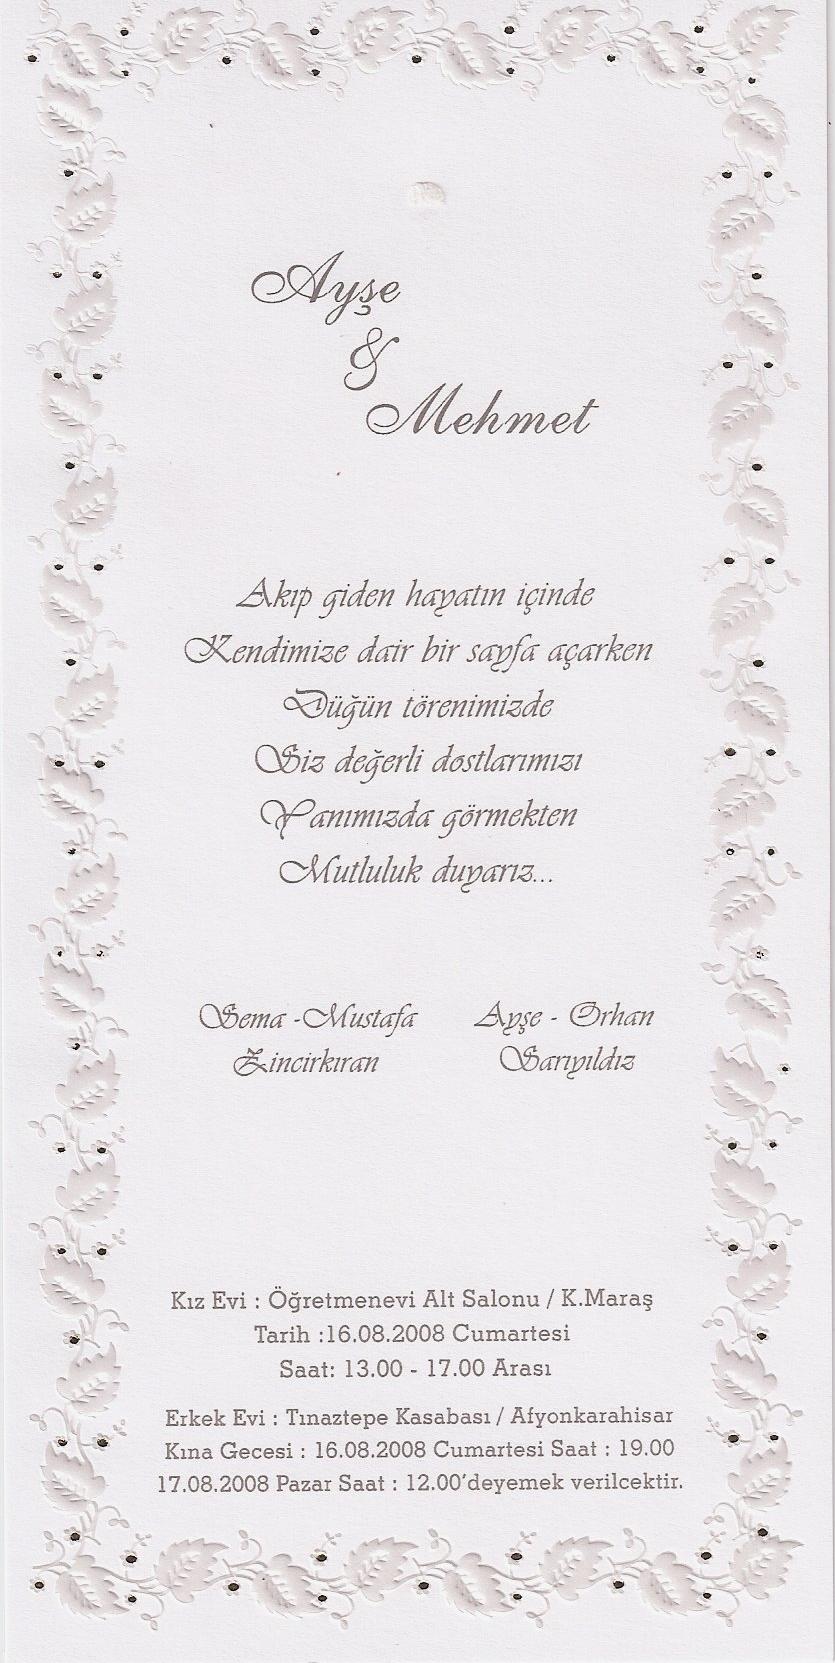 Ayşe
&
Mehmet
Akıp giden hayatın içinde
Kendimize dair bir sayfa açarken
Düğün törenimizde
Siz değerli dostlarımızı
Yanımızda görmekten
Mutluluk duyarız...
Sema -Mustafa
Zincirkıran
Ayşe - Orhan
Sarıyıldız
Kız Evi : Öğretmenevi Alt Salonu / K.Maraş
Tarih :16.08.2008 Cumartesi
Saat: 13.00 - 17.00 Arası
Erkek Evi : Tınaztepe Kasabası / Afyonkarahisar
Kına Gecesi : 16.08.2008 Cumartesi Saat : 19.00
17.08.2008 Pazar Saat : 12.00'deyemek verilcektir.